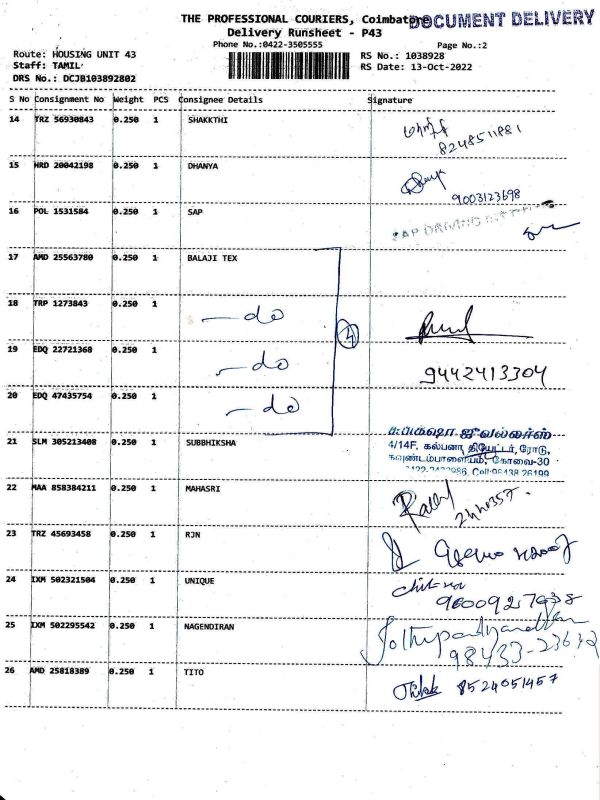 THE PROFESSIONAL COURIERS, Coimbatore
DOCUMENT DELIVERY
Delivery Runsheet - P43
Phone No.:0422-3505555
Page No.:2
Route: HOUSING UNIT 43
RS No.: 1038928
Staff: TAMIL
RS Date: 13-Oct-2022
DRS No.: DCJB103892802
S No Consignment No Weight PCS Consignee Details Signature
14 TRZ 56930843 0.250 1 SHAKKTHI
8248511881
15 HRD 20042198 0.250 1 DHANYA
9003123698
16 POL 1531584 0.250 1 SAP
SAP DRIVING
17 AMD 25563780 0.250 1 BALAJI TEX
18 TRP 1273843 0.250 1
— do
4
19 EDQ 22721368 0.250 1
— do
9442413304
20 EDQ 47435754 0.250 1
— do
21 SLM 305213408 0.250 1 SUBBHIKSHA
ஜுவல்லர்ஸ்
4/14F, கல்பனா தியேட்டர், ரோடு,
கவுண்டம்பாளையம், கோவை-30
Cell:98438 26199
22 MAA 858384211 0.250 1 MAHASRI
2440357
23 TRZ 45693458 0.250 1 RJN
24 IXM 502321504 0.250 1 UNIQUE
9600927038
25 IXM 502295542 0.250 1 NAGENDIRAN
98433-23632
26 AMD 25818389 0.250 1 TITO
8524051457